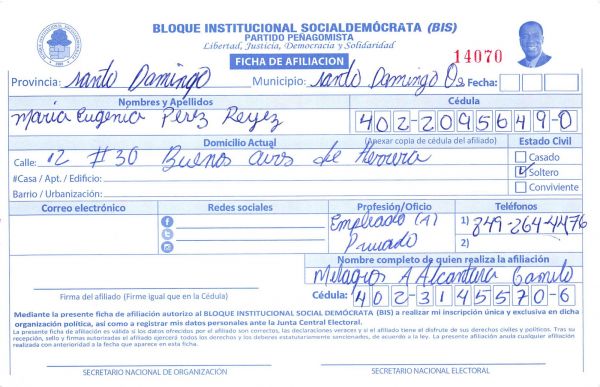 BLOQUE INSTITUCIONAL SOCIALDEMÓCRATA (BIS)
PARTIDO PEÑAGOMISTA
Libertad, Justicia, Democracia y Solidaridad
FICHA DE AFILIACION
14070
Provincia: Santo Domingo Municipio: Santo Domingo O. Fecha:
Nombres y Apellidos Cédula
María Eugenia Pérez Reyez 402-2095649-0
Domicilio Actual (Anexar copia de cédula del afiliado) Estado Civil
Calle: 12 #30 Buenos aires de Herrera Casado
#Casa / Apt. / Edificio: Soltero
Barrio / Urbanización: Conviviente
Correo electrónico Redes sociales Profesión/Oficio Teléfonos
Empleado (a) 1) 849-264-4476
Privado 2)
Nombre completo de quien realiza la afiliación
Milagros A Alcantara Camilo
Firma del afiliado (Firme igual que en la Cédula) Cédula: 402-3145570-6
Mediante la presente ficha de afiliación autorizo al BLOQUE INSTITUCIONAL SOCIAL DEMÓCRATA (BIS) a realizar mi inscripción única y exclusiva en dicha
organización política, así como a registrar mis datos personales ante la Junta Central Electoral.
La presente ficha de afiliación es válida si los datos ofrecidos por el afiliado son correctos, las declaraciones veraces y si el afiliado tiene el disfrute de sus derechos civiles y políticos. Tras su
recepción, sello y firmas autorizadas el afiliado ejercerá todos los derechos y los deberes estatutariamente sancionados, de acuerdo a la ley. La presente afiliación anula cualquier afiliación
realizada con anterioridad a la fecha que aparece en esta ficha.
SECRETARIO NACIONAL DE ORGANIZACIÓN SECRETARIO NACIONAL ELECTORAL